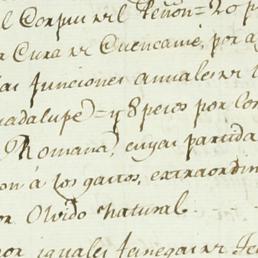 l Corpus del Peñon = 20 p
Cura de Cuencamé, por a
las funciones anuales de l
uadalupe) = y 8 pesos por los
Romana), cuyas partida
on á los gastos, extraordin
or Olvido natural
por iguales fanegas de